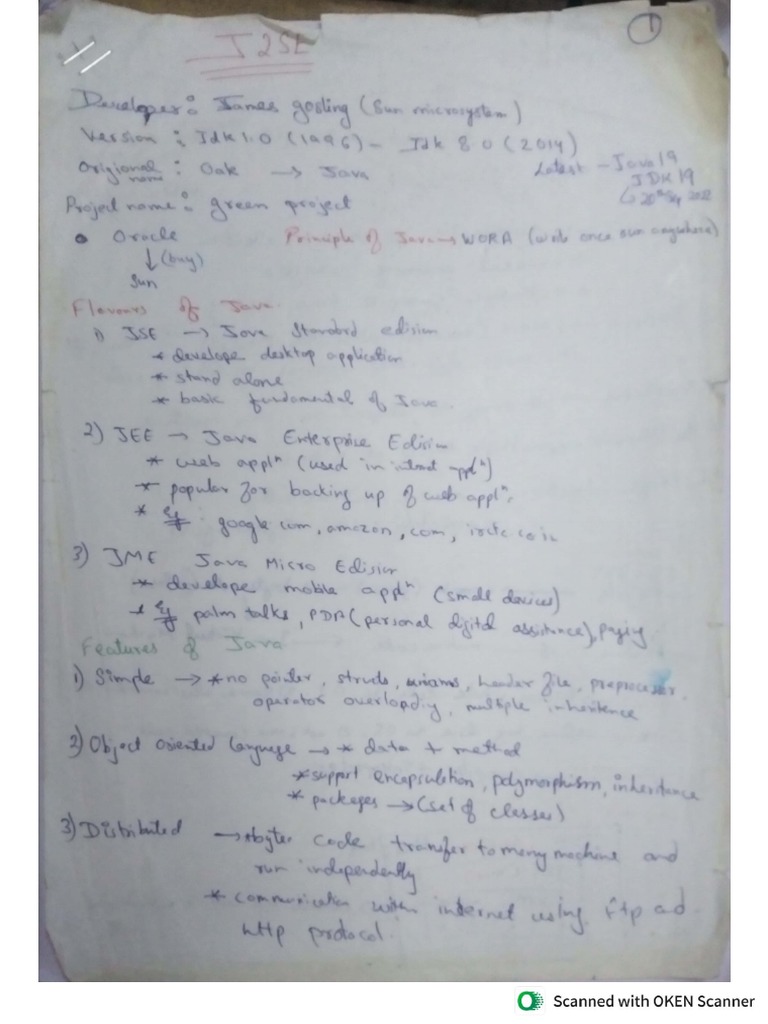 1
J2SE
Developer: James gosling (Sun microsystem)
Version: Jdk 1.0 (1996) - Jdk 8.0 (2014)
Origional name : Oak → Java
Latest - Java 19
JDK 19
20th Sep 2022
Project name: green project
• Oracle
↓ (buy)
Sun
Principle of Java WORA (write once run anywhere)
Flavours of Java
1) JSE → Java Standard edision
* develope desktop application
* stand alone
* basic fundamental of Java.
2) JEE → Java Enterprise Edision
* web applⁿ (used in applⁿ)
* popular for backing up of web applⁿ.
* Eg: google com, amazon, com, irctc co in
3) JME Java Micro Edision
* develope mobile applⁿ (small devices)
* Eg palm talks, PDA (personal digital assistance), paging
Features of Java
1) Simple → * no pointer, structs, unions, header file, preprocessor,
operator overloading, multiple inheritence
2) Object oriented language → * data + method
* support encapsulation, polymorphism, inheritance
* packages → (set of classes)
3) Distributed → * byte code transfer to memory machine and
run independently
* communication with internet using ftp and
http protocol.
Scanned with OKEN Scanner